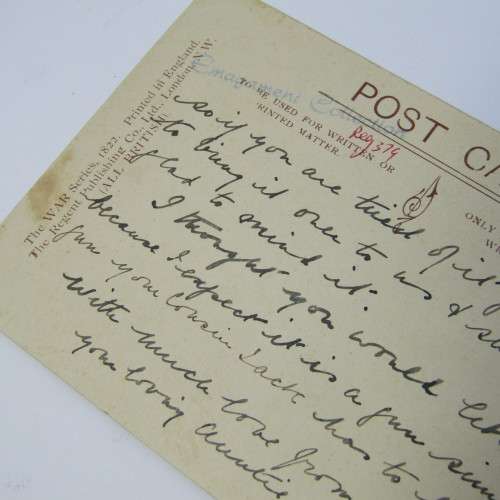 The WAR Series, 1822. Printed in England.
The Regent Publishing Co., Ltd., London, N.W.
(ALL BRITISH)
POST CA
TO BE USED FOR WRITTEN OR
PRINTED MATTER.
ONLY
WR
Reg 379
so if you are tired of it
to bring it over to us & s
glad to mind it.
I thought you would like
because I expect it is a gun simi
gun your cousin Jack has to
With much love from
your loving Auntie